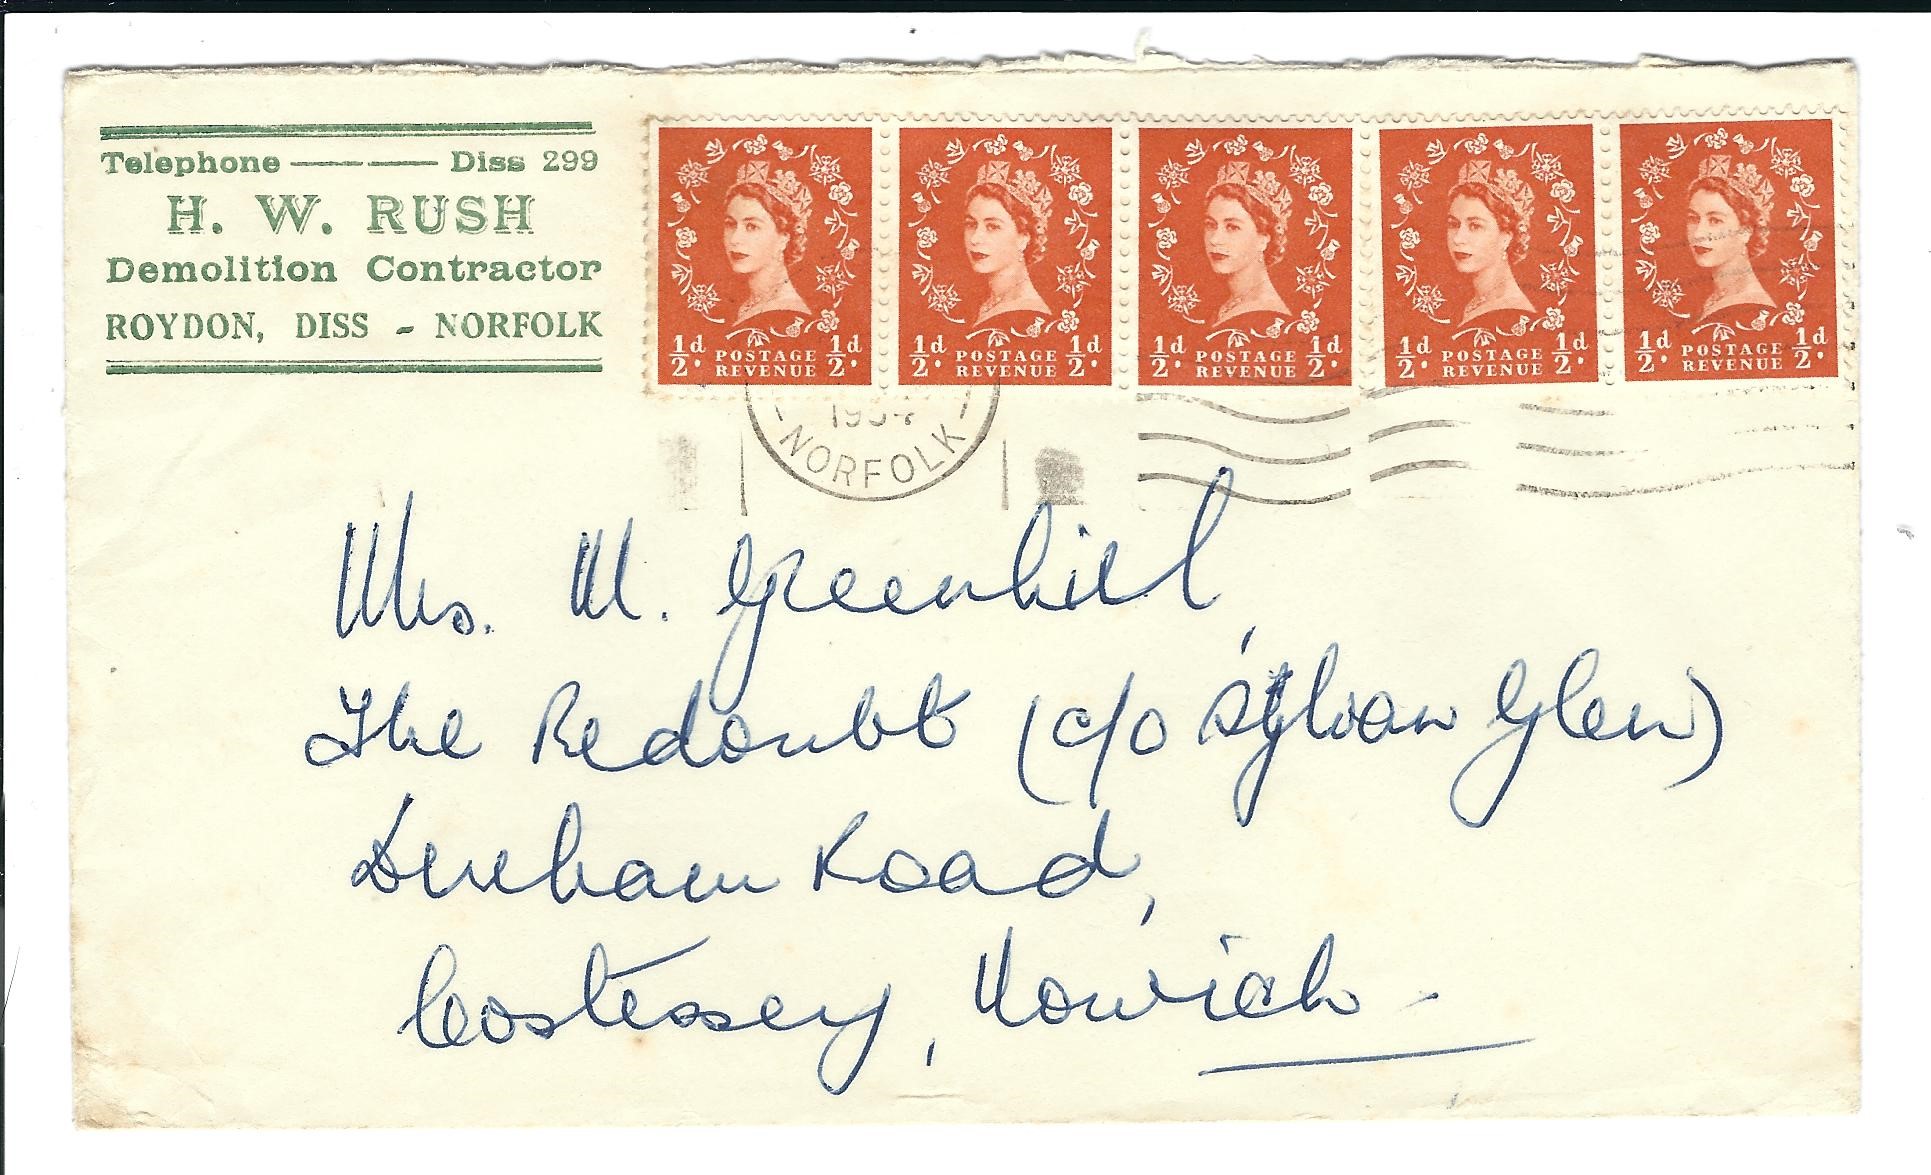 Telephone ——— Diss 299
H. W. RUSH
Demolition Contractor
ROYDON, DISS - NORFOLK
½d. POSTAGE REVENUE ½d.
½d. POSTAGE REVENUE ½d.
½d. POSTAGE REVENUE ½d.
½d. POSTAGE REVENUE ½d.
½d. POSTAGE REVENUE ½d.
1954
NORFOLK
Mrs. M. Greenhill,
The Redoubt (c/o Sylvan Glen)
Dereham Road,
Costessey, Norwich -